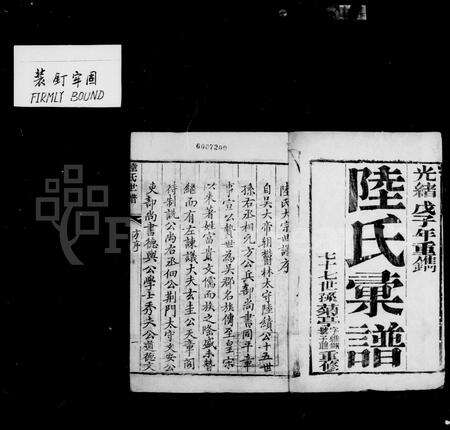 裝釘牢固
FIRMLY BOUND
6007200
光緒戊子年重鐫
陸氏彙譜
七十七世孫
重修
陸氏大宗世譜序
自吳大帝朝鬱林太守陸績公十五世
孫右丞相元方公兵部尚書同平章
事宣公贄世為吳郡名族傳至皇宋
以來著姓富貴文儒而族之隆盛承藝
繼而有左諫議大夫玄圭公天章閣
待制詵公尚右丞佃公荊門太守文安公
吏部尚書德輿公學士秀夫公道德文